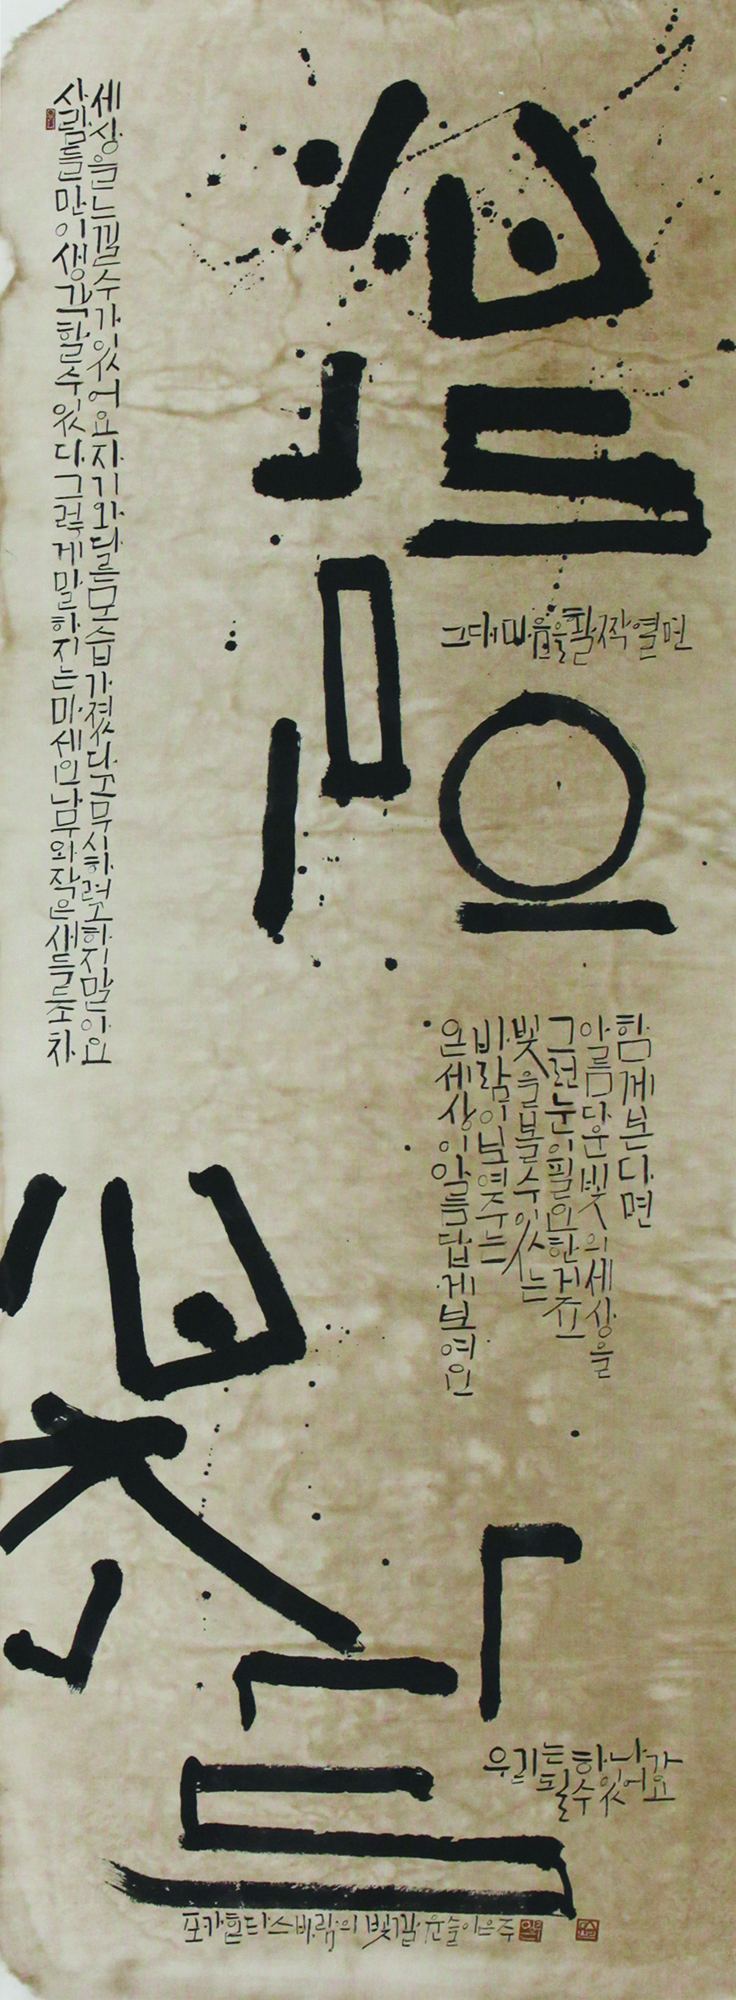 사람들만이생각할수있다그렇게말하지는마세요나무와작은새들조차
세상을느낄수가있어요자기와다른모습가졌다고무시하려고하지말아요
바람의
그대 마음을 활짝 열면
온세상이아름답게보여요
바람이보여주는
빛을볼수있는
그런눈이필요한거죠
아름다운빛의세상을
함께본다면
빛깔
우리는 하나가
될수있어요
포카혼타스 바람의 빛깔 윤슬 이은주